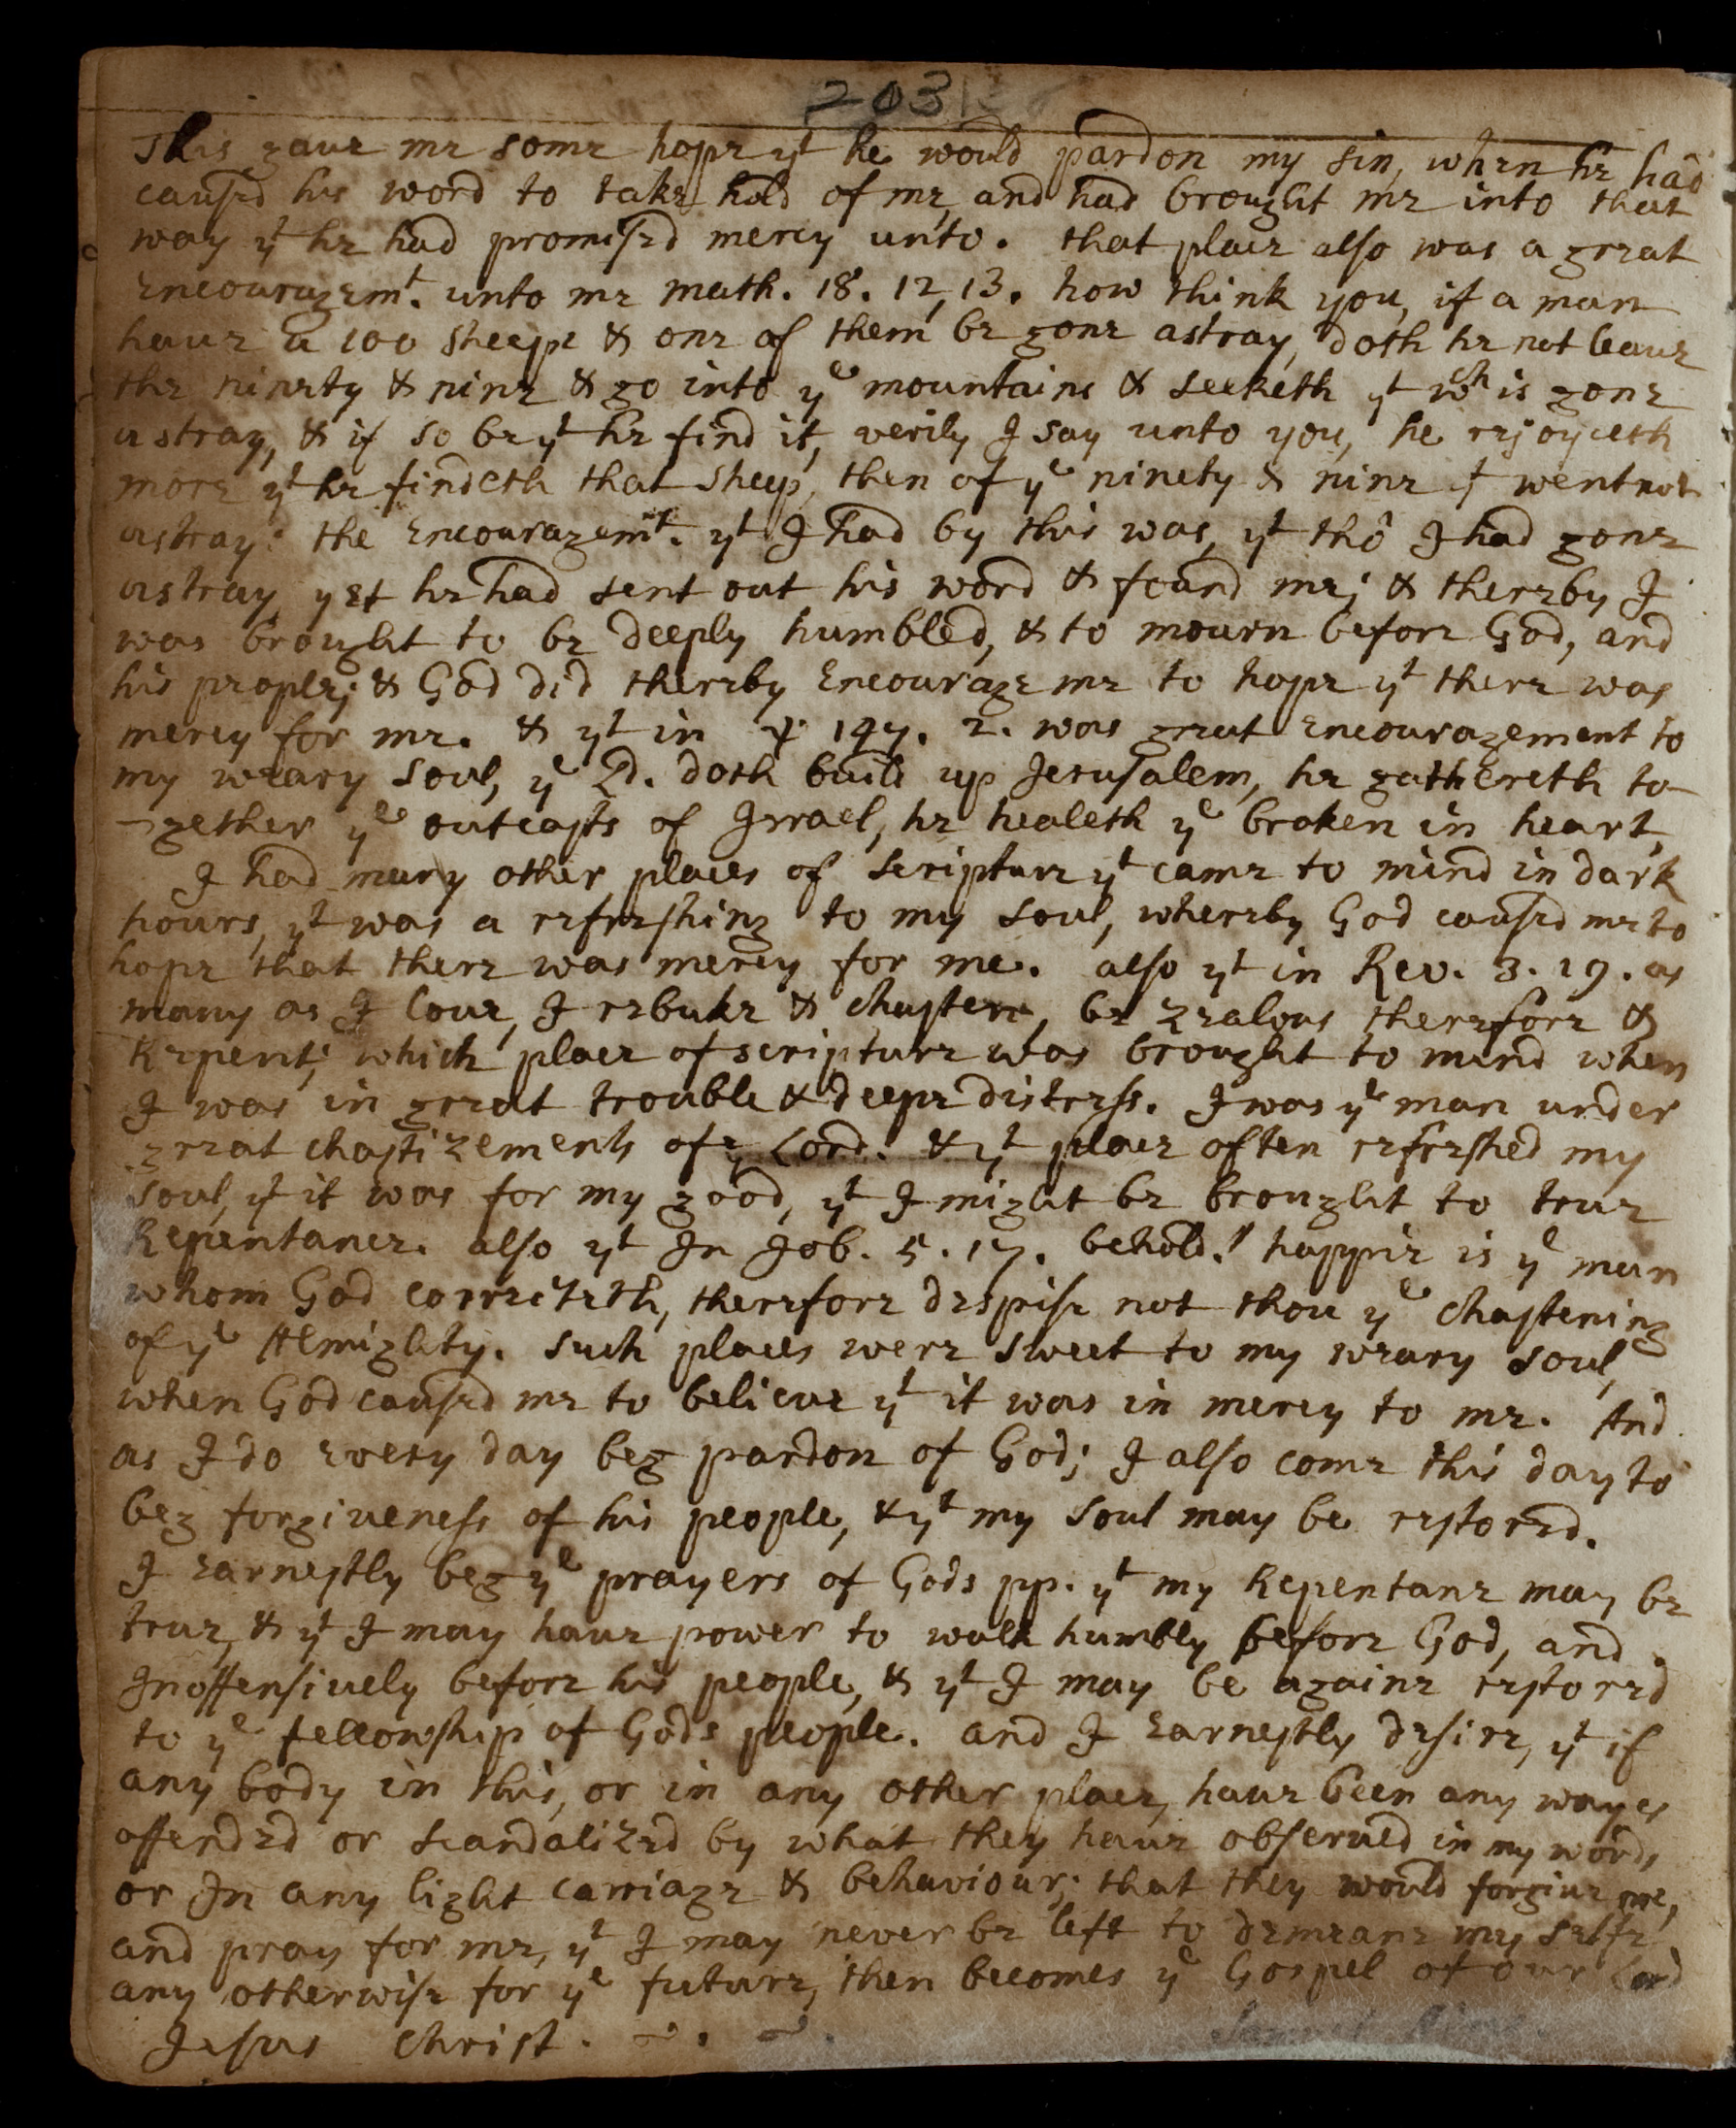 203
This gaue me some hope yt he would pardon my sin, when he had
caused his word to take hold of me, and had brought me into that
way yt he had promised mercy unto. that place also was a great
Encouragemt. unto me math. 18. 12, 13. how think you, if a man
haue a 100 sheepe & one of them be gone astray, doth he not leaue
the ninety & nine & go into ye mountains & seeketh yt wch is gone
astray, & if so be yt he find it, verily I say unto you, he rejoyceth
more yt he findeth that sheep, then of ye ninety & nine yt went not
astray: the Encouragemt. yt I had by this was, yt tho I had gone
astray, yet he had sent out his word & found me; & thereby I
was brought to be deeply humbled, & to mourn before God, and
his people; & God did thereby Encourage me to hope yt there was
mercy for me. & yt in ψ 147. 2. was great Encouragement to
my weary soul, ye Ld. doth build up Jerusalem, he gathereth to-
-gether ye outcasts of Israel, he healeth ye broken in heart,
I had many other places of scripture yt came to mind in dark
hours, yt was a refreshing to my soul, whereby God caused me to
hope that there was mercy for me. also yt in Rev. 3. 19. as
many as I loue, I rebuke & chasten, be zealous therefore &
Repent; which place of scripture was brought to mind when
I was in great trouble & deepe distress. I was ye man under
great chastizements of ye Lord. & yt place often refreshed my
soul, yt it was for my good, yt I might be brought to true
Repentance. also yt In Job. 5. 17. behold! happie is ye man
whom God correcteth, therefore despise not thou ye chastening
of ye Almighty. such places were sweet to my weary soul,
when God caused me to belieue yt it was in mercy to me. And
as I do Every day beg pardon of God; I also come this day to
beg forgiueness of his people, & yt my soul may be restored.
I Earnestly beg ye prayers of Gods pp. yt my Repentanc may be
true, & yt I may haue power to walk humbly before God, and
Inoffensiuely before his people, & yt I may be againe restored
to ye fellowship of Gods people. and I Earnestly desire, yt if
any body in this, or in any other place, haue been any wayes
offended or scandalized by what they haue obserued in my words,
or In any light carriage & behauiour; that they would forgiue me,
and pray for me, yt I may never be left to demeane my selfe
any otherwise for ye future, then becomes ye Gospel of our Lord
Jesus Christ.